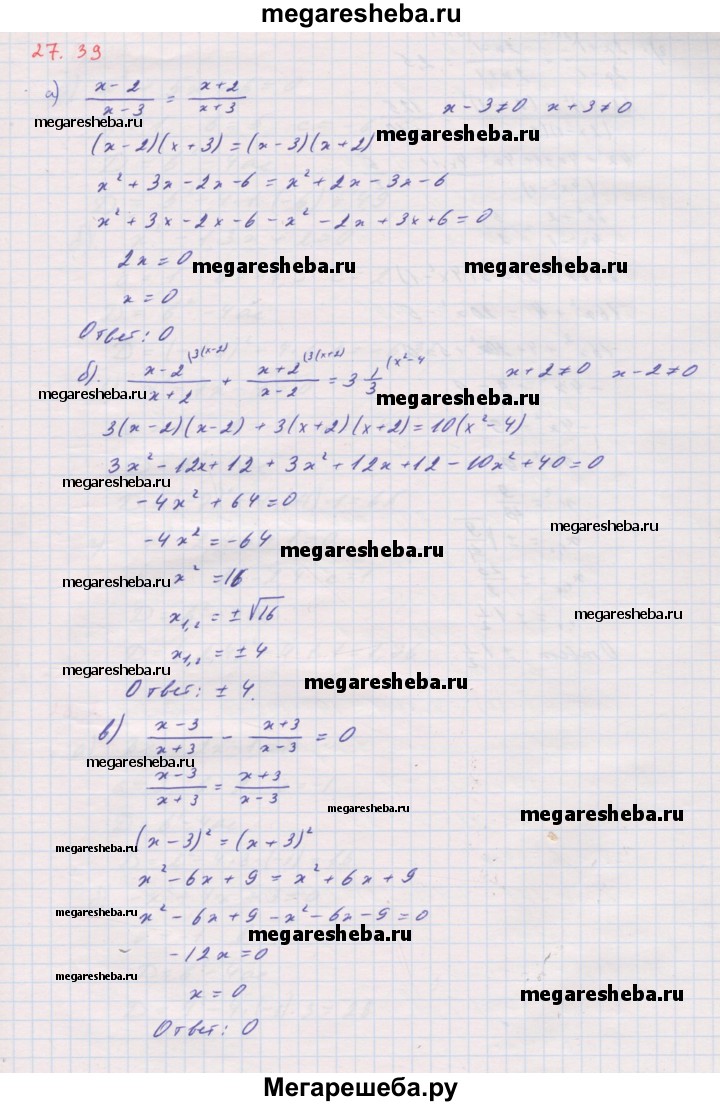 megaresheba.ru
27.39
а) (x-2)/(x-3) = (x+2)/(x+3) x-3≠0 x+3≠0
megaresheba.ru
megaresheba.ru
(x-2)(x+3)=(x-3)(x+2)
x²+3x-2x-6=x²+2x-3x-6
x²+3x-2x-6-x²-2x+3x+6=0
2x=0
megaresheba.ru megaresheba.ru
x=0
Ответ: 0
б). (x-2)/(x+2) (3(x-2) + (x+2)/(x-2) (3(x+2) = 3 1/3 (x²-4 x+2≠0 x-2≠0
megaresheba.ru megaresheba.ru
3(x-2)(x-2)+3(x+2)(x+2)=10(x²-4)
3x²-12x+12+3x²+12x+12-10x²+40=0
megaresheba.ru
-4x²+64=0
megaresheba.ru
-4x²=-64
megaresheba.ru
x²=16
megaresheba.ru
x₁,₂=±√16
megaresheba.ru
x₁,₂=±4
megaresheba.ru
megaresheba.ru
Ответ: ±4.
в) (x-3)/(x+3) - (x+3)/(x-3) = 0
megaresheba.ru
(x-3)/(x+3) = (x+3)/(x-3)
megaresheba.ru
megaresheba.ru
(x-3)²=(x+3)²
megaresheba.ru
x²-6x+9=x²+6x+9
megaresheba.ru
x²-6x+9-x²-6x-9=0
megaresheba.ru
-12x=0
megaresheba.ru
x=0
megaresheba.ru
Ответ: 0
Мегарешеба.ру